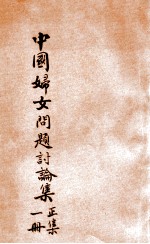 中國婦女問題討論集
正集
一册